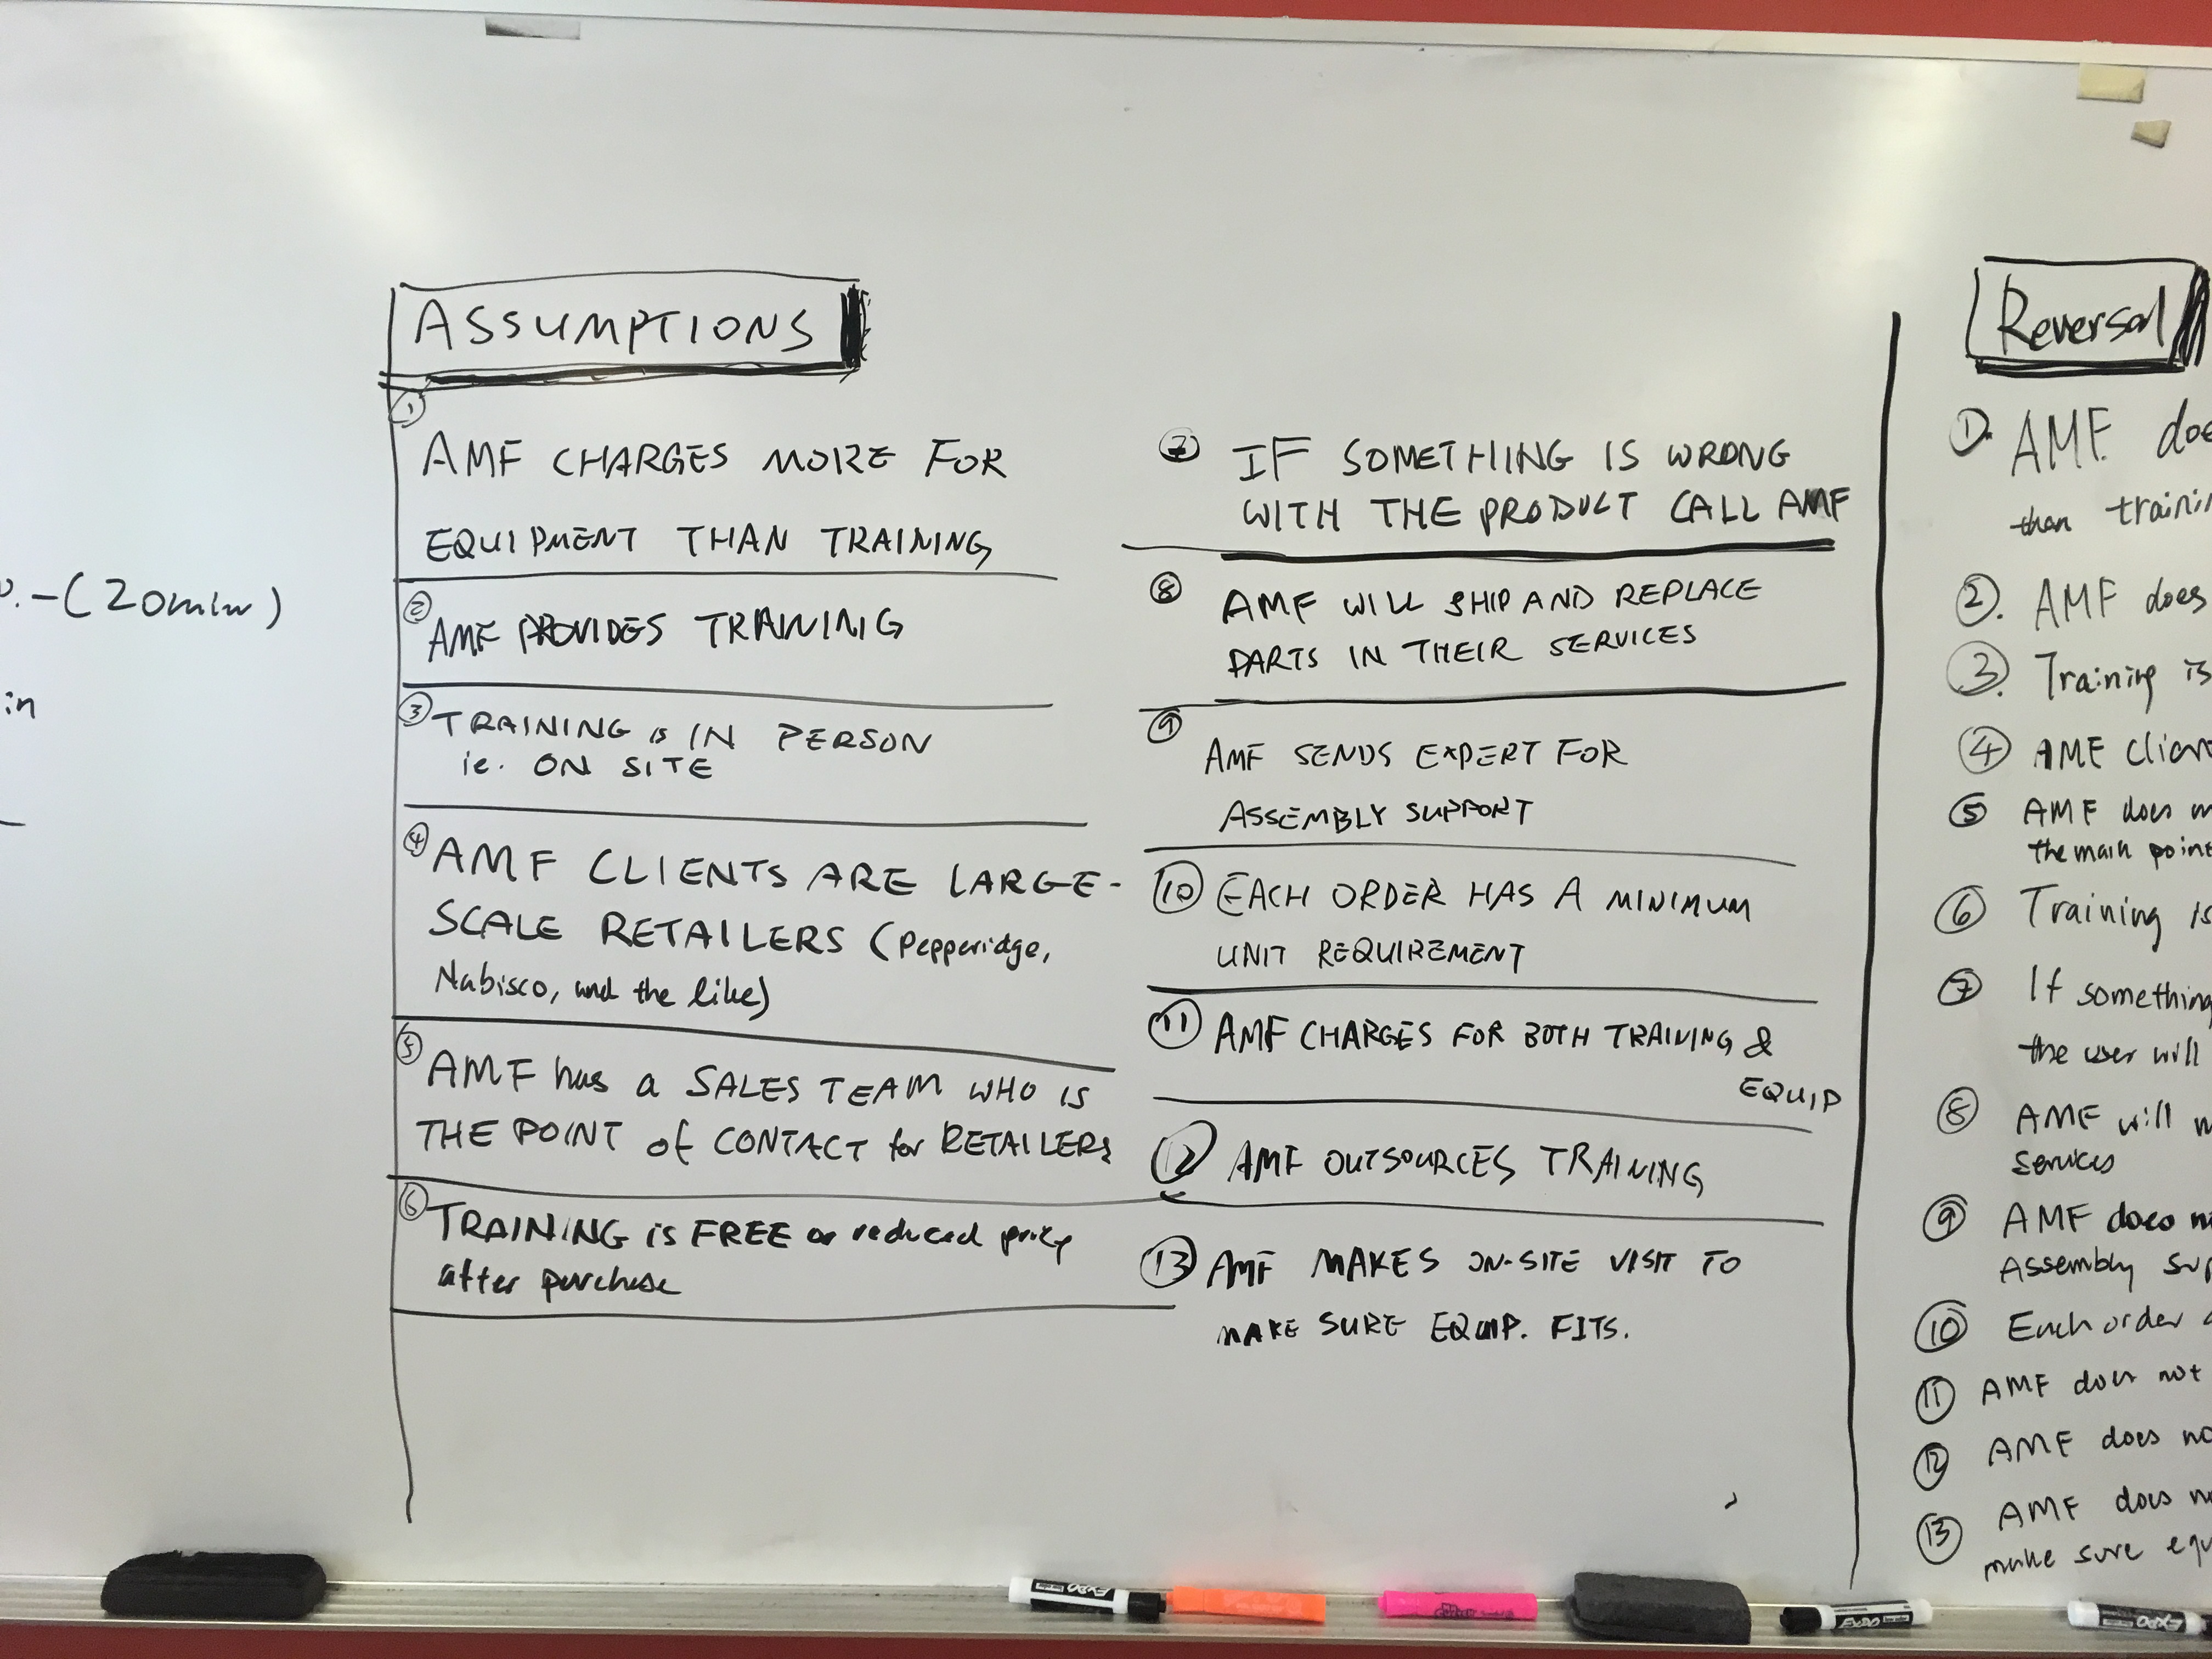 - (20min)
in
ASSUMPTIONS
① AMF CHARGES MORE FOR
EQUIPMENT THAN TRAINING
② AMF PROVIDES TRAINING
③ TRAINING is IN PERSON
ie. ON SITE
④ AMF CLIENTS ARE LARGE-
SCALE RETAILERS (Pepperidge,
Nabisco, and the like)
⑤ AMF has a SALES TEAM WHO IS
THE POINT of CONTACT for RETAILERS
⑥ TRAINING is FREE or reduced price
after purchase
⑦ IF SOMETHING IS WRONG
WITH THE PRODUCT CALL AMF
⑧ AMF WILL SHIP AND REPLACE
PARTS IN THEIR SERVICES
⑨ AMF SENDS EXPERT FOR
ASSEMBLY SUPPORT
⑩ EACH ORDER HAS A MINIMUM
UNIT REQUIREMENT
⑪ AMF CHARGES FOR BOTH TRAINING &
EQUIP
⑫ AMF OUTSOURCES TRAINING
⑬ AMF MAKES ON-SITE VISIT TO
MAKE SURE EQUIP. FITS.
Reversal
①. AMF doe
than trainin
②. AMF does
③. Training is
④ AMF Clien
⑤ AMF does n
the main point
⑥ Training is
⑦ If something
the user will
⑧ AMF will n
services
⑨ AMF does n
Assembly sup
⑩ Each order
⑪ AMF does not
⑫ AMF does no
⑬ AMF does n
make sure equ
EXPO
EXPO
EXPO